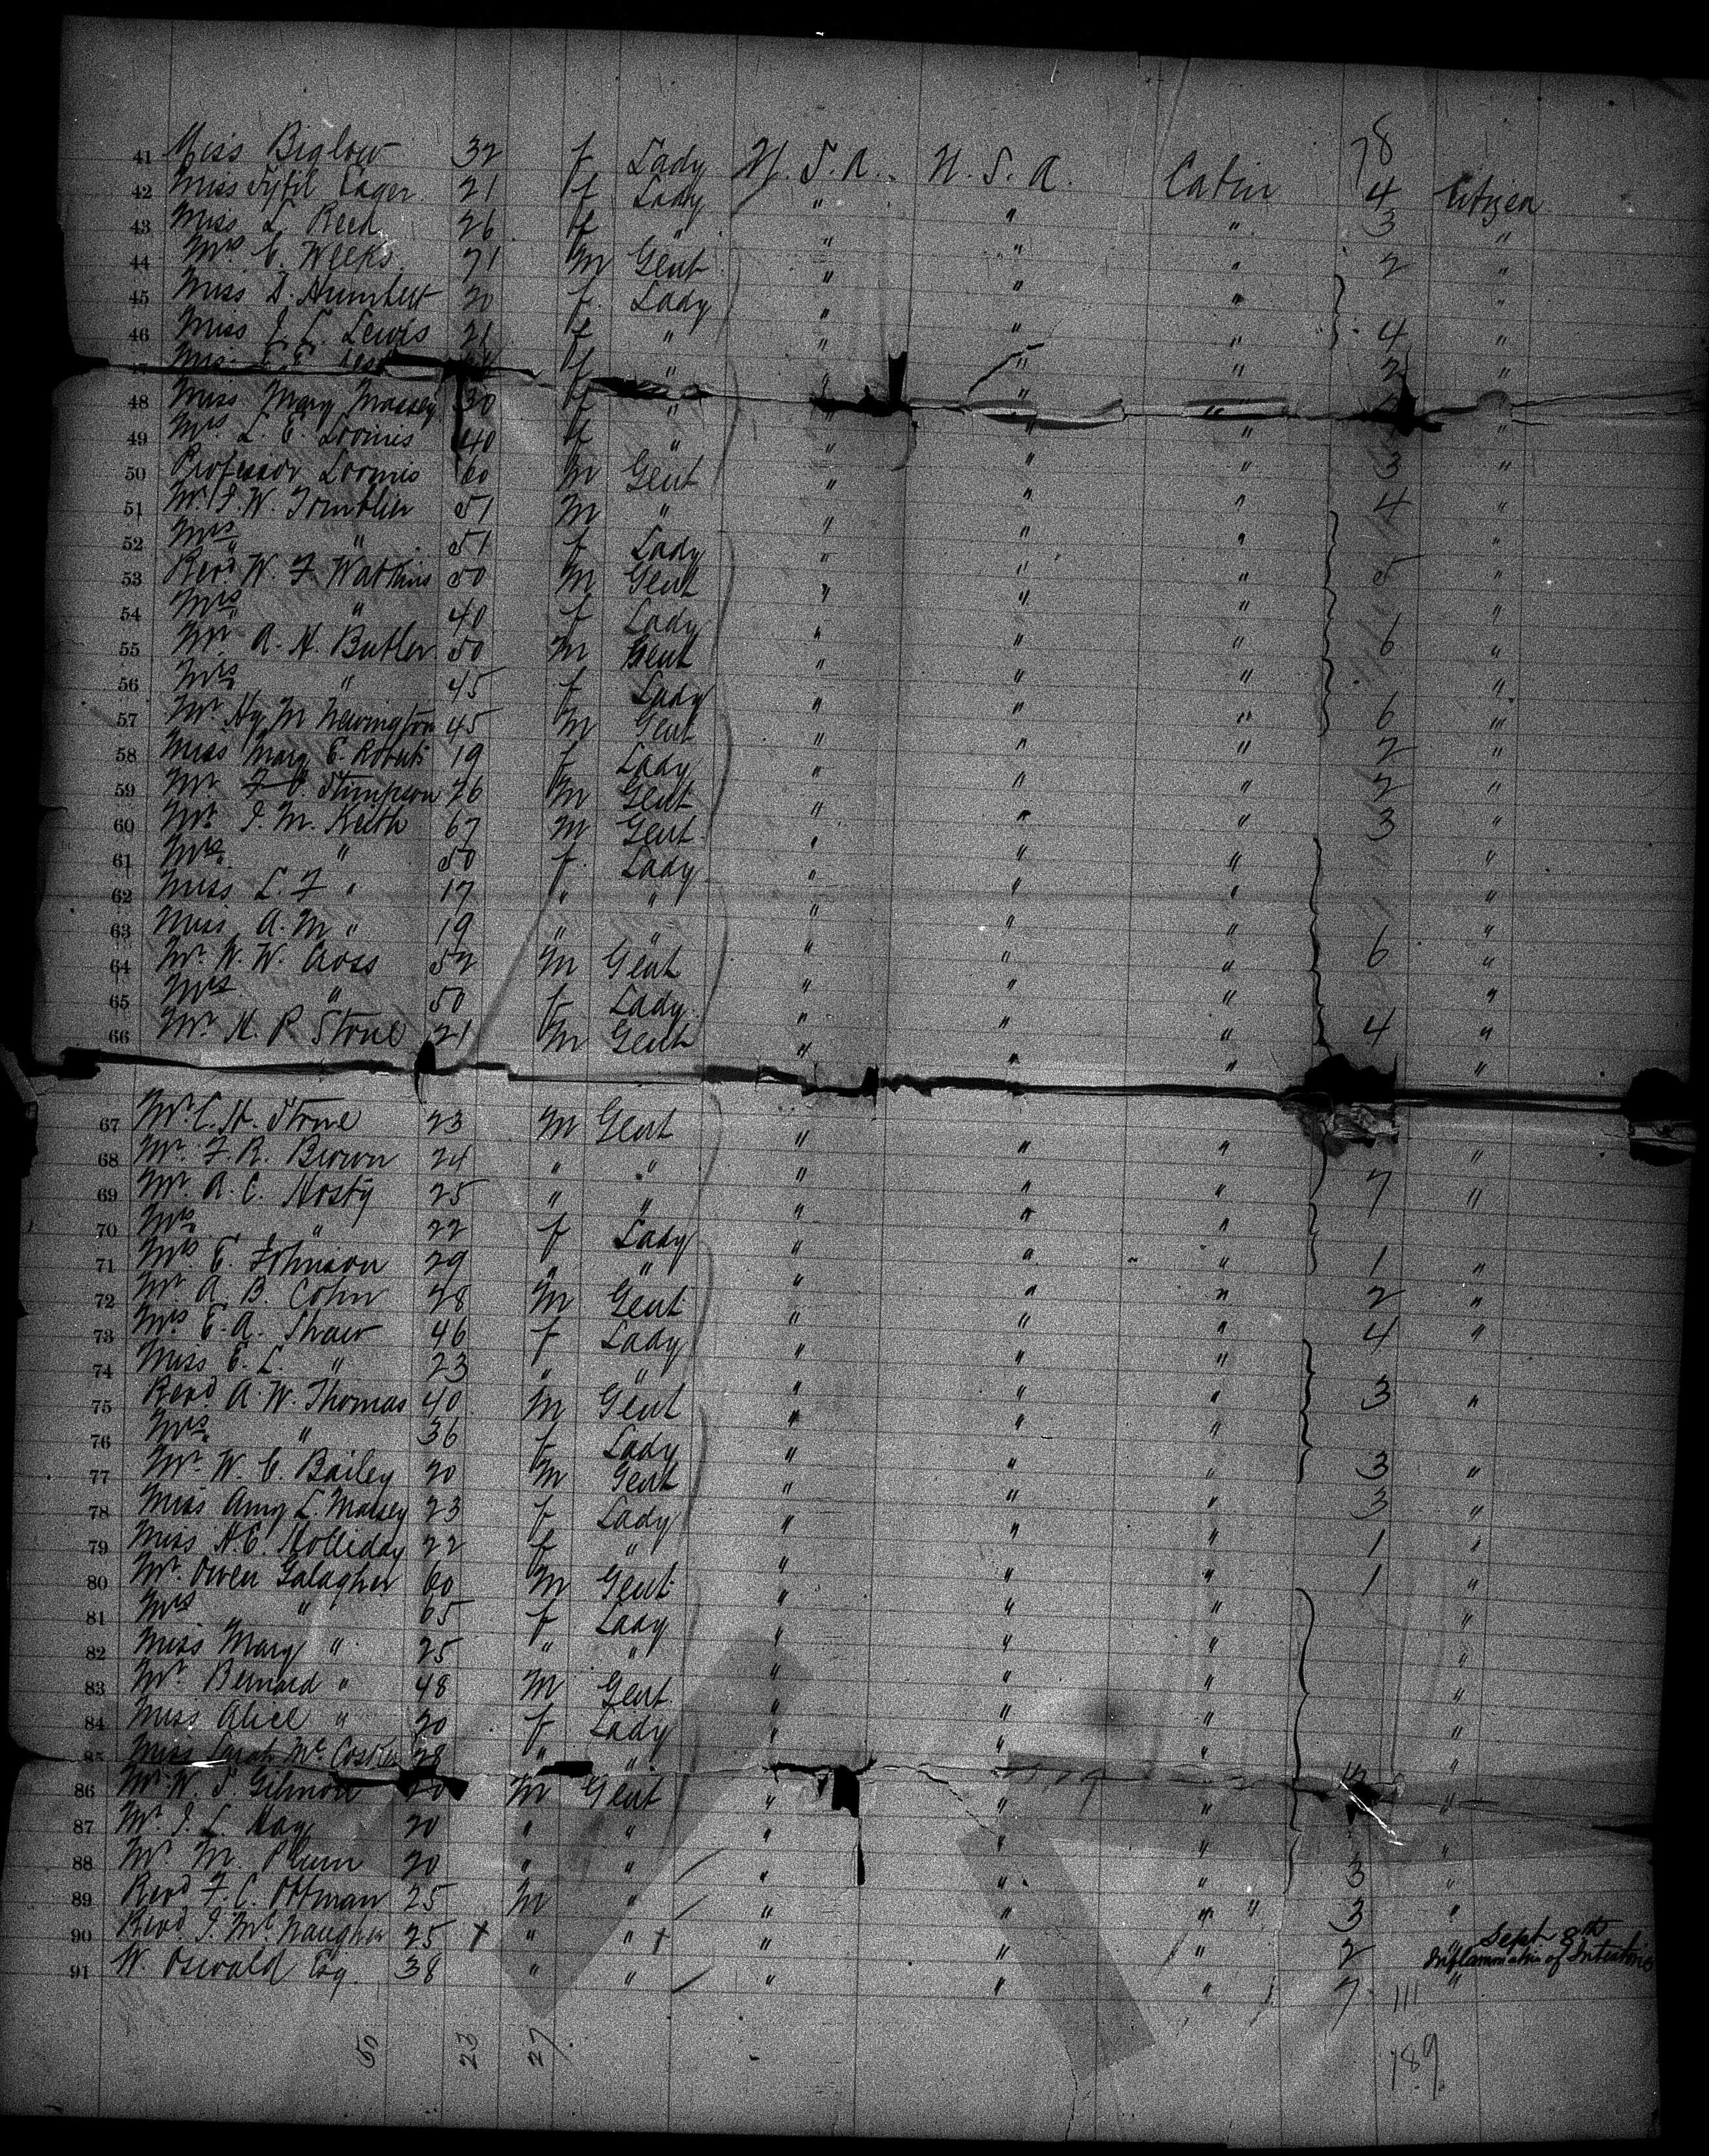 78
41 Miss Biglow 32 f Lady U.S.A. U.S.A. Cabin 4 Citizen
42 Miss Sybil Eager 21 f Lady " " " 3 "
43 Miss L. Reed 26 f " " " " 2 "
44 Mrs C. Weeks 71 M Gent " " " "
45 Miss D. Humbert 20 f. Lady " " " 4 "
46 Miss J. L. Lewis 21 f " " " " 2 "
47 f " " " " "
48 Miss Mary Massey 30 f " " " " "
49 Mrs L. E. Loomis 40 f " " " " 3 "
50 Professor Loomis 60 M Gent " " " 4 "
51 Mr. J. W. 51 M " " " "
52 Mrs " " 51 f Lady " " " 5 "
53 Revd W. F. Watkins 50 M Gent " " " "
54 Mrs " 40 f Lady " " " 6 "
55 Mr A. H. Butler 50 M Gent " " " "
56 Mrs " 45 f Lady " " " 6 "
57 Mr. Hy. M Newington 45 M Gent " " " 2 "
58 Miss Mary E. Roberts 19 f Lady " " " 2 "
59 Mr F. C. Stimpson 26 M Gent " " " 3 "
60 Mr. J. M. Keith 67 M Gent. " " " "
61 Mrs " 50 f. Lady " " " "
62 Miss. L. F " 17 " " " " " "
63 Miss A. M " 19 " " " " " 6 "
64 Mr. W. W. Cross 52 M Gent " " " "
65 Mrs " 50 f Lady " " " 4 "
66 Mr. H. P. Stone 21 M Gent " " " "
67 Mr. C. H. Stone 23 M Gent " " " "
68 Mr. F. R. Brown 24 " " " " " 7 "
69 Mr. A. C. Hosty 25 " " " " "
70 Mrs " 22 f Lady " " " 1 "
71 Mrs E. Johnson 29 " " " " " 2 "
72 Mr. A. B. Cohn 28 M Gent " " " 4 "
73 Mrs E. A. Shaw 46 f Lady " " "
74 Miss E. L. " 23 " " " " " 3 "
75 Revd A. W. Thomas 40 M Gent " " "
76 Mrs " 36 f Lady " " " 3 "
77 Mr. W. C. Bailey 20 M Gent " " " 3 "
78 Miss Amy L. Massey 23 f Lady " " " 1 "
79 Miss H. C. Holliday 22 f " " " " 1 "
80 Mr. Owen Galagher 60 M Gent " " " "
81 Mrs " 65 f Lady " " " "
82 Miss Mary " 25 " " " " " "
83 Mr. Bernard " 48 M Gent. " " " "
84 Miss Alice " 20 f Lady " " " "
85 Miss Sarah McCosker 28 " " " " " "
86 Mr. W. S. Gilmore M Gent " " " "
87 Mr. J. L. Hay 20 " " " " " 3 "
88 Mr. M. Plum 20 " " " " " 3 "
89 Revd F. C. Ottman 25 M " " " " "
90 Revd J. McNaugher 25 x " " x " " " 2 " Sept 8th
Inflammation of Intestines
91 W. Oswald Esq. 38 " " " " " 7 "
111
50 23 27
189